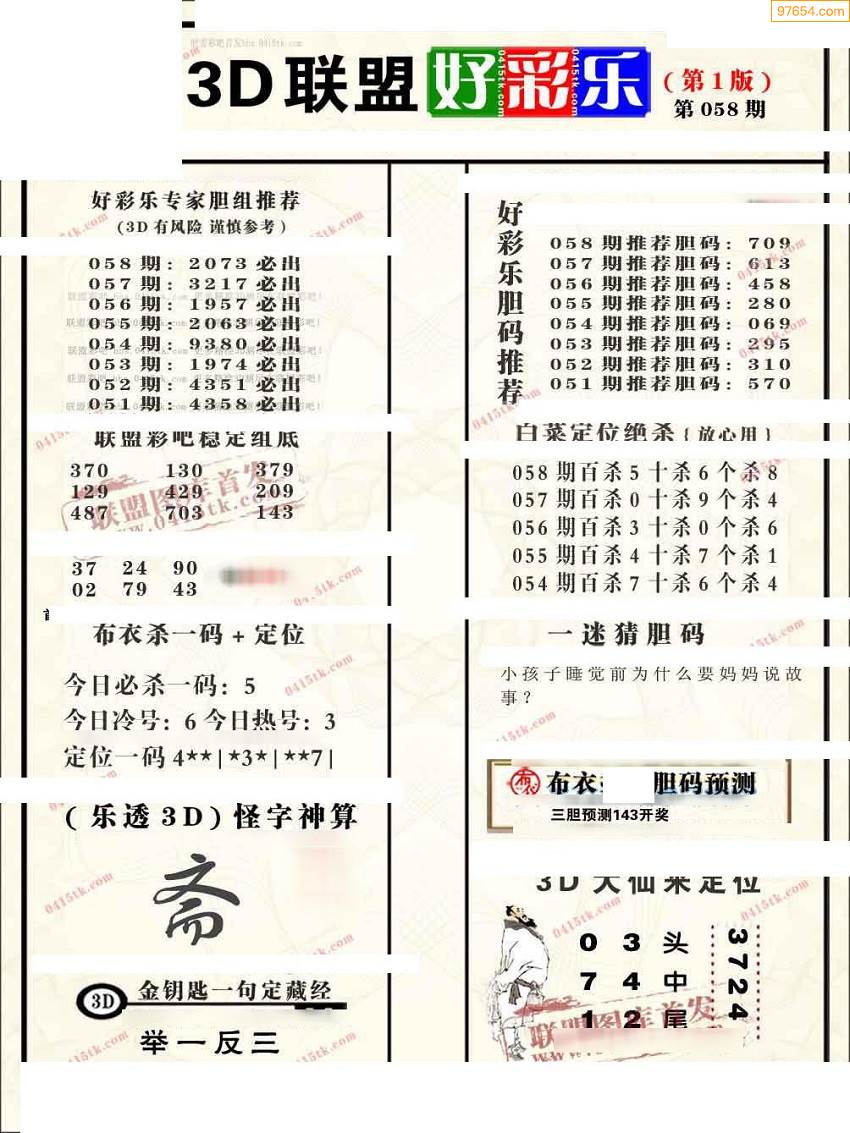 97654.com
3D联盟好彩乐
(第1版)
第058期
好彩乐专家胆组推荐
(3D有风险 谨慎参考)
058期: 2073必出
057期: 3217必出
056期: 1957必出
055期: 2063必出
054期: 9380必出
053期: 1974必出
052期: 4351必出
051期: 4358必出
联盟彩吧稳定组底
370 130 379
129 429 209
487 703 143
37 24 90
02 79 43
布衣杀一码+定位
今日必杀一码: 5
今日冷号: 6 今日热号: 3
定位一码 4**|*3*|**7|
(乐透3D)怪字神算
斋
3D 金钥匙一句定藏经
举一反三
好彩乐胆码推荐
058期推荐胆码: 709
057期推荐胆码: 613
056期推荐胆码: 458
055期推荐胆码: 280
054期推荐胆码: 069
053期推荐胆码: 295
052期推荐胆码: 310
051期推荐胆码: 570
白菜定位绝杀{放心用}
058期百杀5十杀6个杀8
057期百杀0十杀9个杀4
056期百杀3十杀0个杀6
055期百杀4十杀7个杀1
054期百杀7十杀6个杀4
一迷猜胆码
小孩子睡觉前为什么要妈妈说故
事?
布衣 胆码预测
三胆预测143开奖
3D大仙来定位
0 3 头
7 4 中
1 2 尾
3724
联盟图库首发
www.0415tk.com
0415tk.com